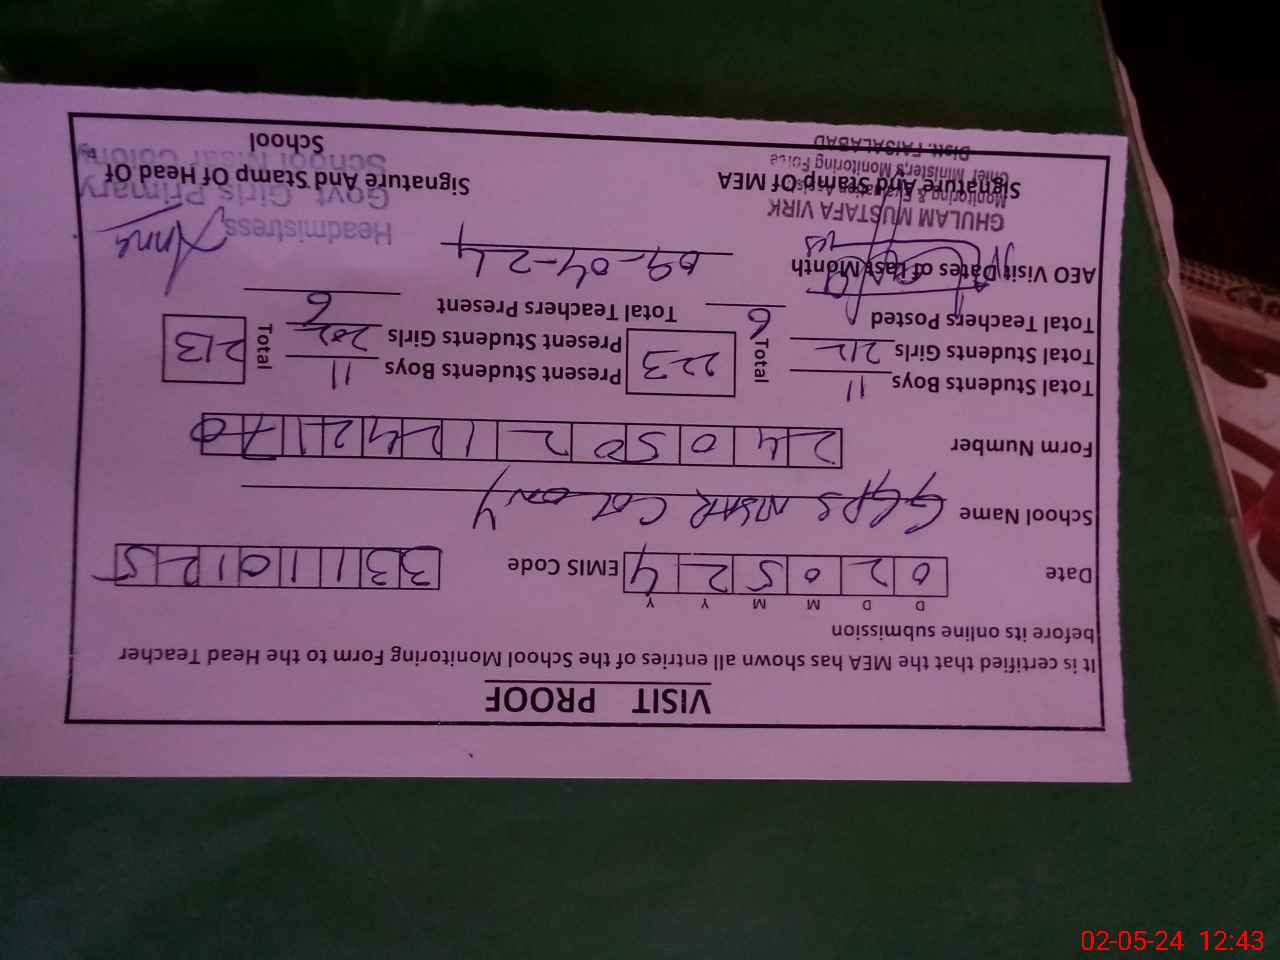 VISIT PROOF
It is certified that the MEA has shown all entries of the School Monitoring Form to the Head Teacher
before its online submission
D D M M Y Y
Date 0 2 0 5 2 4 EMIS Code 3 3 1 1 0 1 2 5
School Name GGPS NISAR COLONY
Form Number 2 4 0 5 0 2 1 2 4 2 1 7 0
Total Students Boys 11 Total 223 Present Students Boys 11 Total 213
Total Students Girls 212 Present Students Girls 202
Total Teachers Posted 6 Total Teachers Present 6
AEO Visit Dates of Last Month 09-04-24
Headmistress
GHULAM MUSTAFA VIRK
Govt. Girls Primary
Signature And Stamp Of MEA Signature And Stamp Of Head Of
Chief Minister,s Monitoring Force
School Nisar Colony
School
Distt. FAISALABAD
02-05-24 12:43